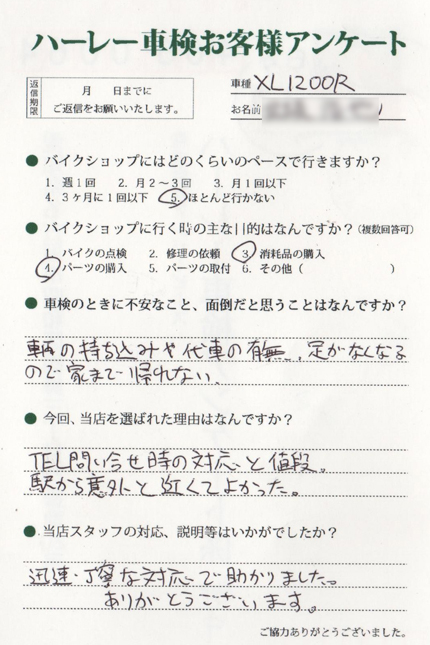 ハーレー車検お客様アンケート
返信期限
月 日までに
ご返信をお願いいたします。
車種 XL1200R
お名前
● バイクショップにはどのくらいのペースで行きますか？
1. 週1回 2. 月2～3回 3. 月1回以下
4. 3ヶ月に1回以下 5. ほとんど行かない
● バイクショップに行く時の主な目的はなんですか？(複数回答可)
1. バイクの点検 2. 修理の依頼 3. 消耗品の購入
4. パーツの購入 5. パーツの取付 6. その他（ ）
● 車検のときに不安なこと、面倒だと思うことはなんですか？
車輌の持ち込みや代車の有無、足がなくなる
ので家まで帰れない。
● 今回、当店を選ばれた理由はなんですか？
TEL問い合せ時の対応と値段。
駅から意外と近くてよかった。
● 当店スタッフの対応、説明等はいかがでしたか？
迅速・丁寧な対応で助かりました。
ありがとうございます。
ご協力ありがとうございました。